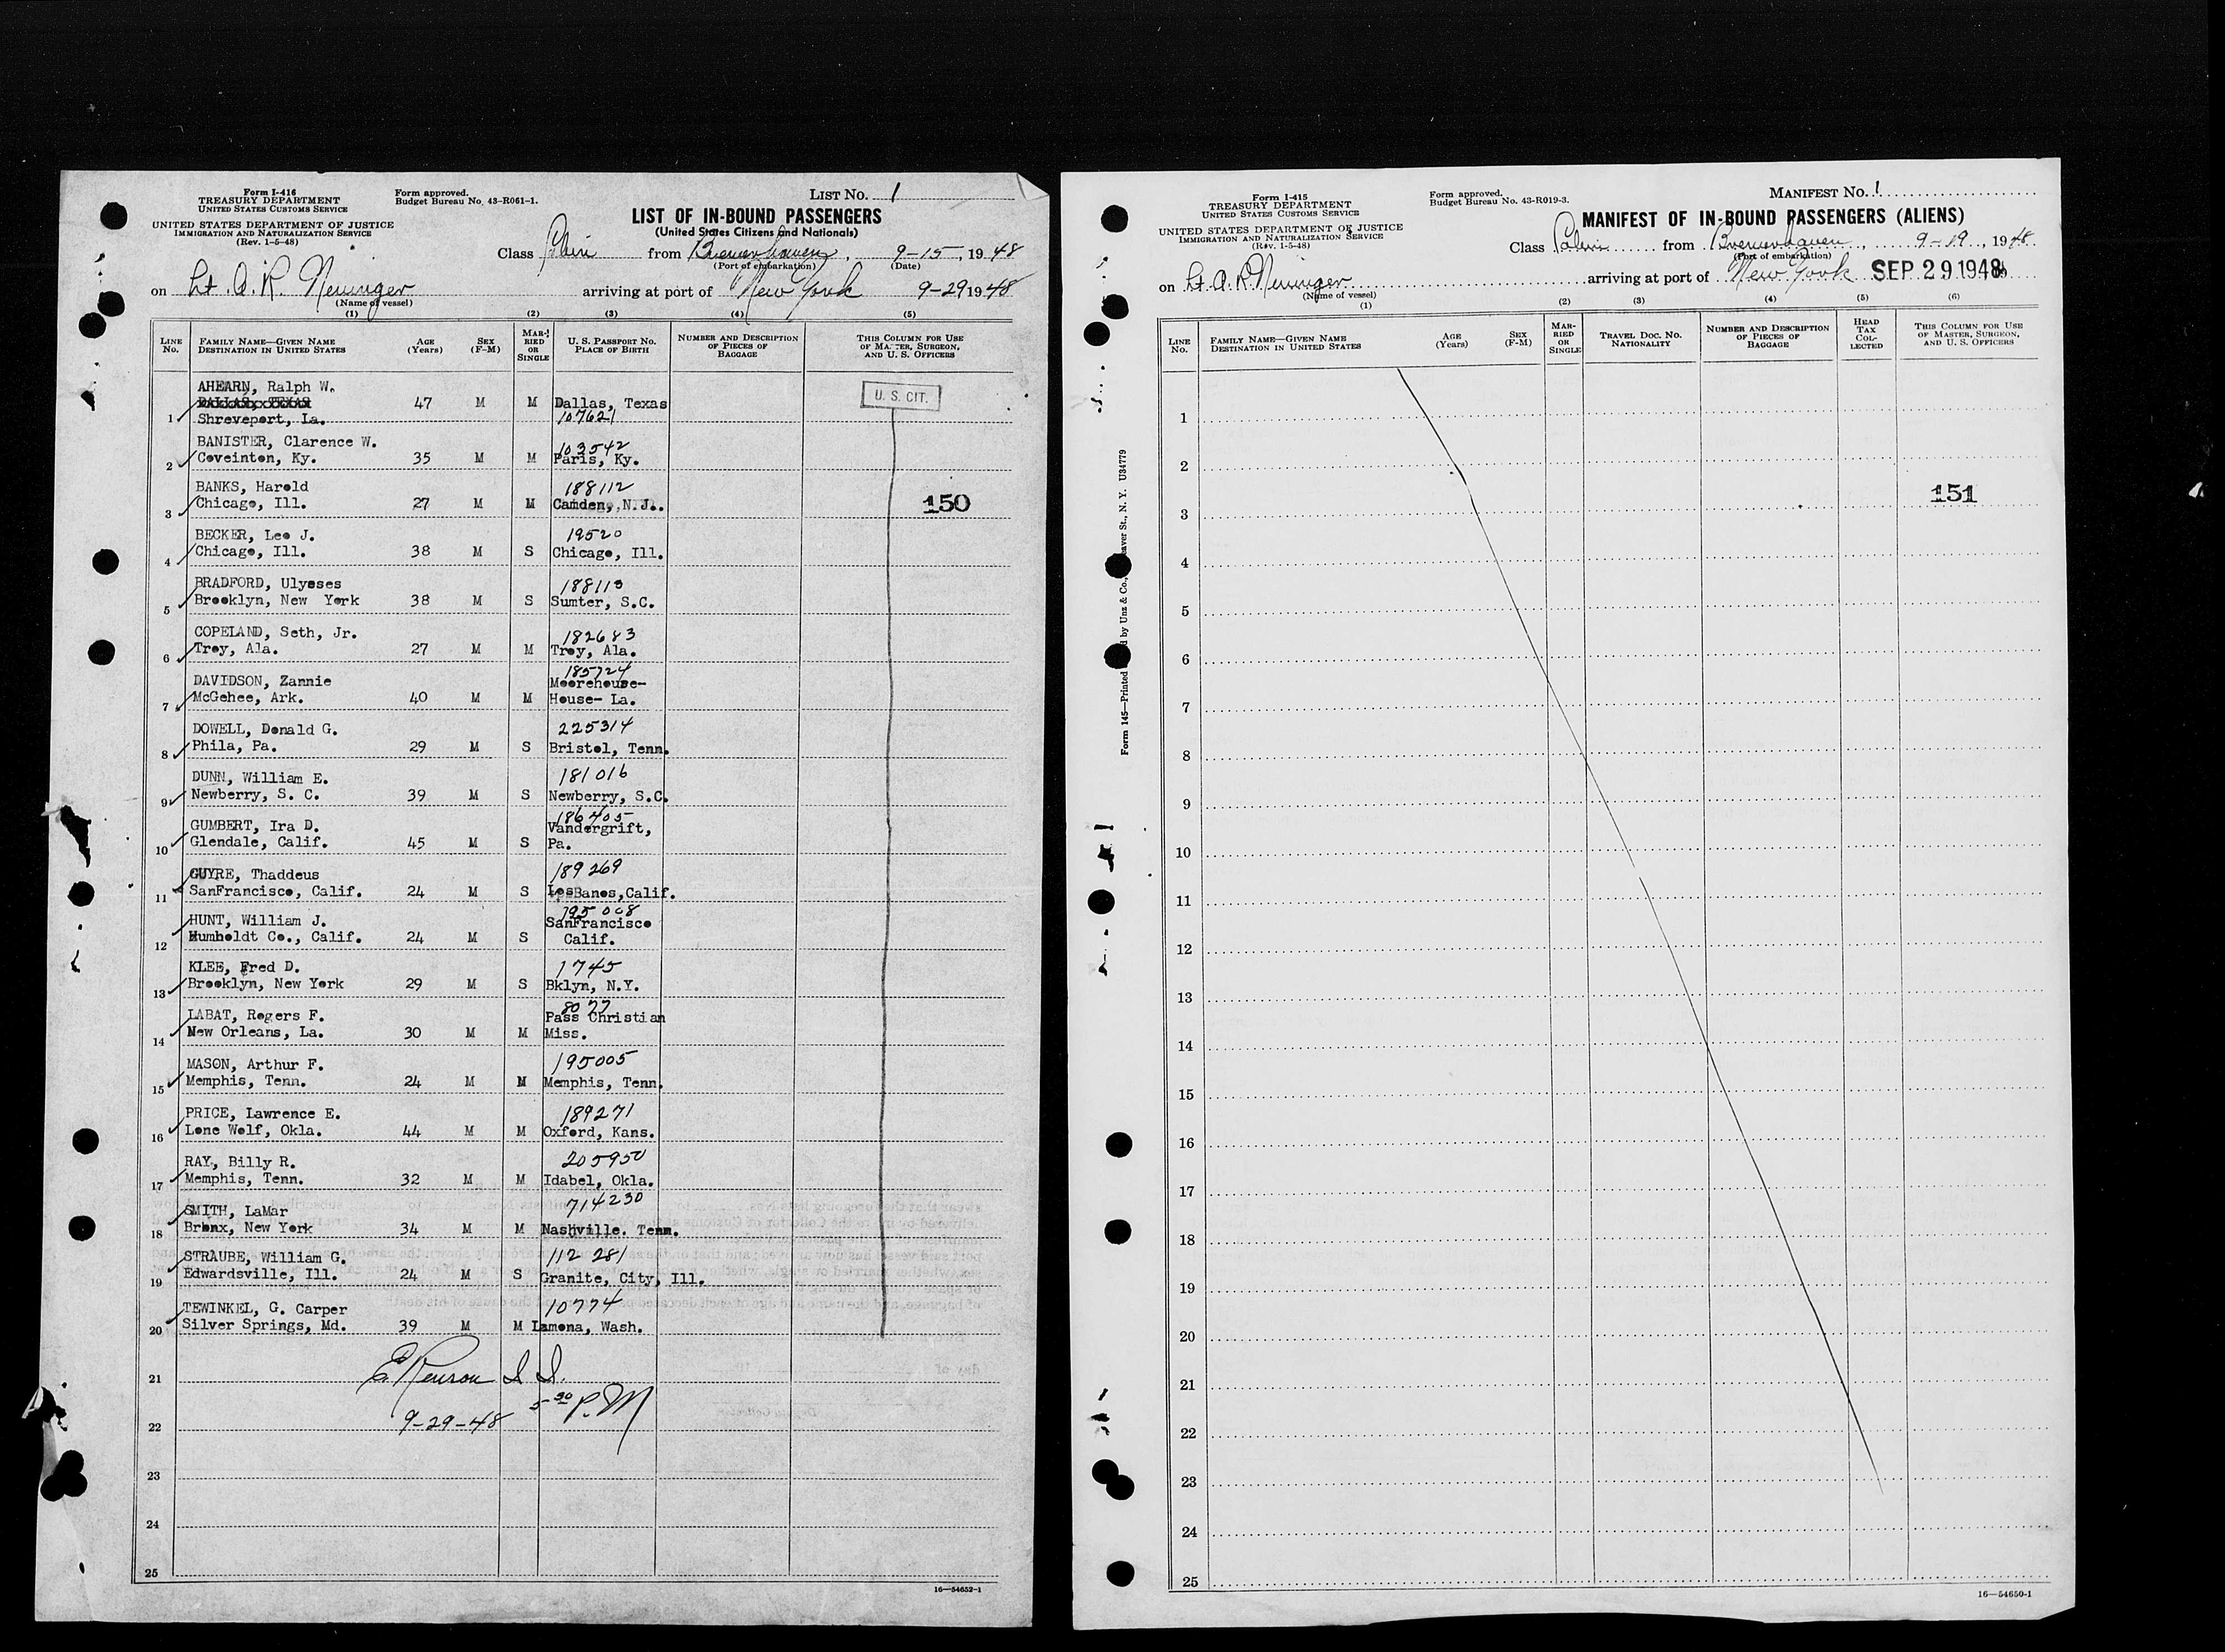 Form I-416
TREASURY DEPARTMENT
UNITED STATES CUSTOMS SERVICE
UNITED STATES DEPARTMENT OF JUSTICE
IMMIGRATION AND NATURALIZATION SERVICE
(Rev. 1-5-48)
Form approved.
Budget Bureau No. 43-R061-1.
LIST NO. 1
LIST OF IN-BOUND PASSENGERS
(United States Citizens and Nationals)
Class Cabin from Bremerhaven, 9-15, 1948
(Port of embarkation) (Date)
on Lt. A. R. Nininger arriving at port of New York 9-29 1948
(Name of vessel)
(1) (2) (3) (4) (5)
LINE No. FAMILY NAME—GIVEN NAME DESTINATION IN UNITED STATES AGE (Years) SEX (F-M) MARRIED OR SINGLE U. S. PASSPORT NO. PLACE OF BIRTH NUMBER AND DESCRIPTION OF PIECES OF BAGGAGE THIS COLUMN FOR USE OF MASTER, SURGEON, AND U. S. OFFICERS
AHEARN, Ralph W.
DALLAS, TEXAS 47 M M Dallas, Texas U. S. CIT.
1 Shreveport, La. 107621
BANISTER, Clarence W. 103542
2 Coveinton, Ky. 35 M M Paris, Ky.
BANKS, Harold 188112
3 Chicago, Ill. 27 M M Camden, N.J. 150
BECKER, Leo J. 19520
4 Chicago, Ill. 38 M S Chicago, Ill.
BRADFORD, Ulysses 188113
5 Brooklyn, New York 38 M S Sumter, S.C.
COPELAND, Seth, Jr. 182683
6 Troy, Ala. 27 M M Troy, Ala.
185724
DAVIDSON, Zannie Moorehouse-
7 McGehee, Ark. 40 M M House- La.
DOWELL, Donald G. 225314
8 Phila, Pa. 29 M S Bristol, Tenn.
DUNN, William E. 181016
9 Newberry, S. C. 39 M S Newberry, S.C.
186405
GUMBERT, Ira D. Vandergrift,
10 Glendale, Calif. 45 M S Pa.
GUYRE, Thaddeus 189269
11 SanFrancisco, Calif. 24 M S LosBanos,Calif.
195008
HUNT, William J. SanFrancisco
12 Humboldt Co., Calif. 24 M S Calif.
KLEE, Fred D. 1745
13 Brooklyn, New York 29 M S Bklyn, N.Y.
8077
LABAT, Rogers F. Pass Christian
14 New Orleans, La. 30 M M Miss.
MASON, Arthur F. 195005
15 Memphis, Tenn. 24 M M Memphis, Tenn.
PRICE, Lawrence E. 189271
16 Lone Wolf, Okla. 44 M M Oxford, Kans.
RAY, Billy R. 205950
17 Memphis, Tenn. 32 M M Idabel, Okla.
SMITH, LaMar 714230
18 Bronx, New York 34 M M Nashville. Tenn.
STRAUBE, William G. 112 281
19 Edwardsville, Ill. 24 M S Granite, City, Ill.
TEWINKEL, G. Carper 10774
20 Silver Springs, Md. 39 M M Lamona, Wash.
21
9-29-48 5 30 P.M
22
23
24
25
16—54652-1
Form I-415
TREASURY DEPARTMENT
UNITED STATES CUSTOMS SERVICE
UNITED STATES DEPARTMENT OF JUSTICE
IMMIGRATION AND NATURALIZATION SERVICE
(Rev. 1-5-48)
Form approved.
Budget Bureau No. 43-R019-3.
MANIFEST NO. 1
MANIFEST OF IN-BOUND PASSENGERS (ALIENS)
Class Cabin from Bremerhaven, 9-19, 1948
(Port of embarkation)
on Lt. A. R. Nininger arriving at port of New York SEP 29 1948
(Name of vessel)
(1) (2) (3) (4) (5) (6)
LINE No. FAMILY NAME—GIVEN NAME DESTINATION IN UNITED STATES AGE (Years) SEX (F-M) MARRIED OR SINGLE TRAVEL DOC. NO. NATIONALITY NUMBER AND DESCRIPTION OF PIECES OF BAGGAGE HEAD TAX COLLECTED THIS COLUMN FOR USE OF MASTER, SURGEON, AND U. S. OFFICERS
1
2
151
3
4
5
6
7
8
9
10
11
12
13
14
15
16
17
18
19
20
21
22
23
24
25
16—54650-1
Form 145—Printed by Unz & Co., St., N. Y. U34779